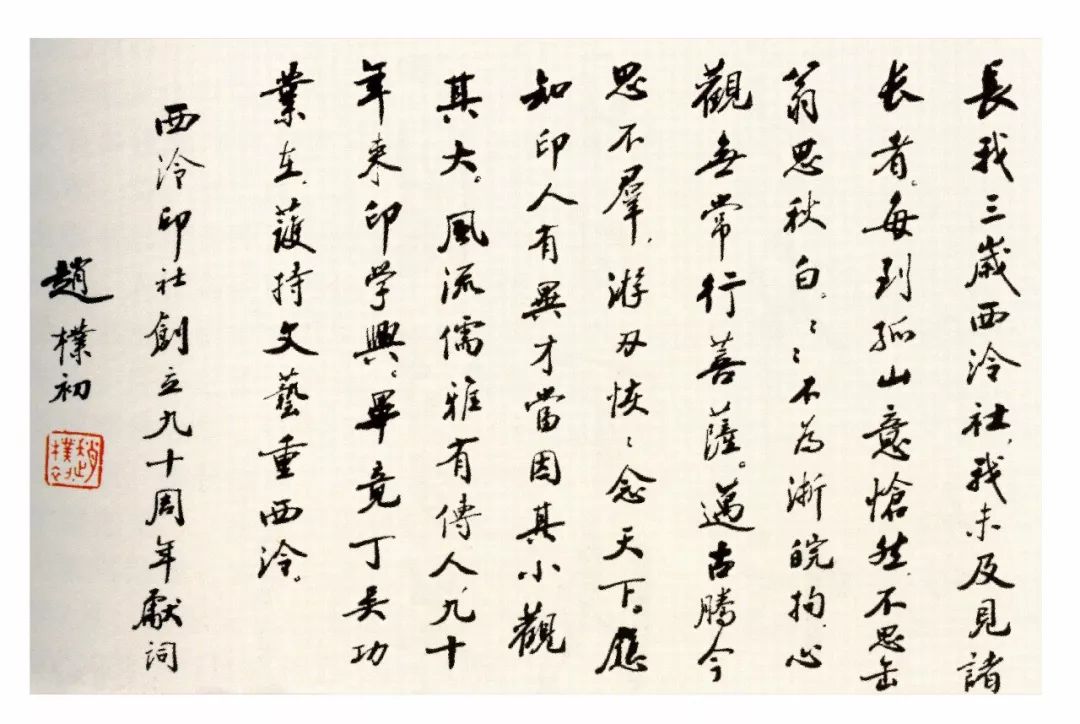 長我三歲西泠社、我未及見諸
长者。每到孤山意愴然、不思缶
翁思秋白。〻〻不为浙皖拘、心
觀無常行菩薩。邁古騰今
思不羣、游刃恢〻念天下。應
知印人有異才當因其小觀
其大。風流儒雅有傳人、九十
年来印学興。畢竟丁吴功
業在、護持文藝重西泠。
西泠印社創立九十周年獻词
趙樸初
趙樸初